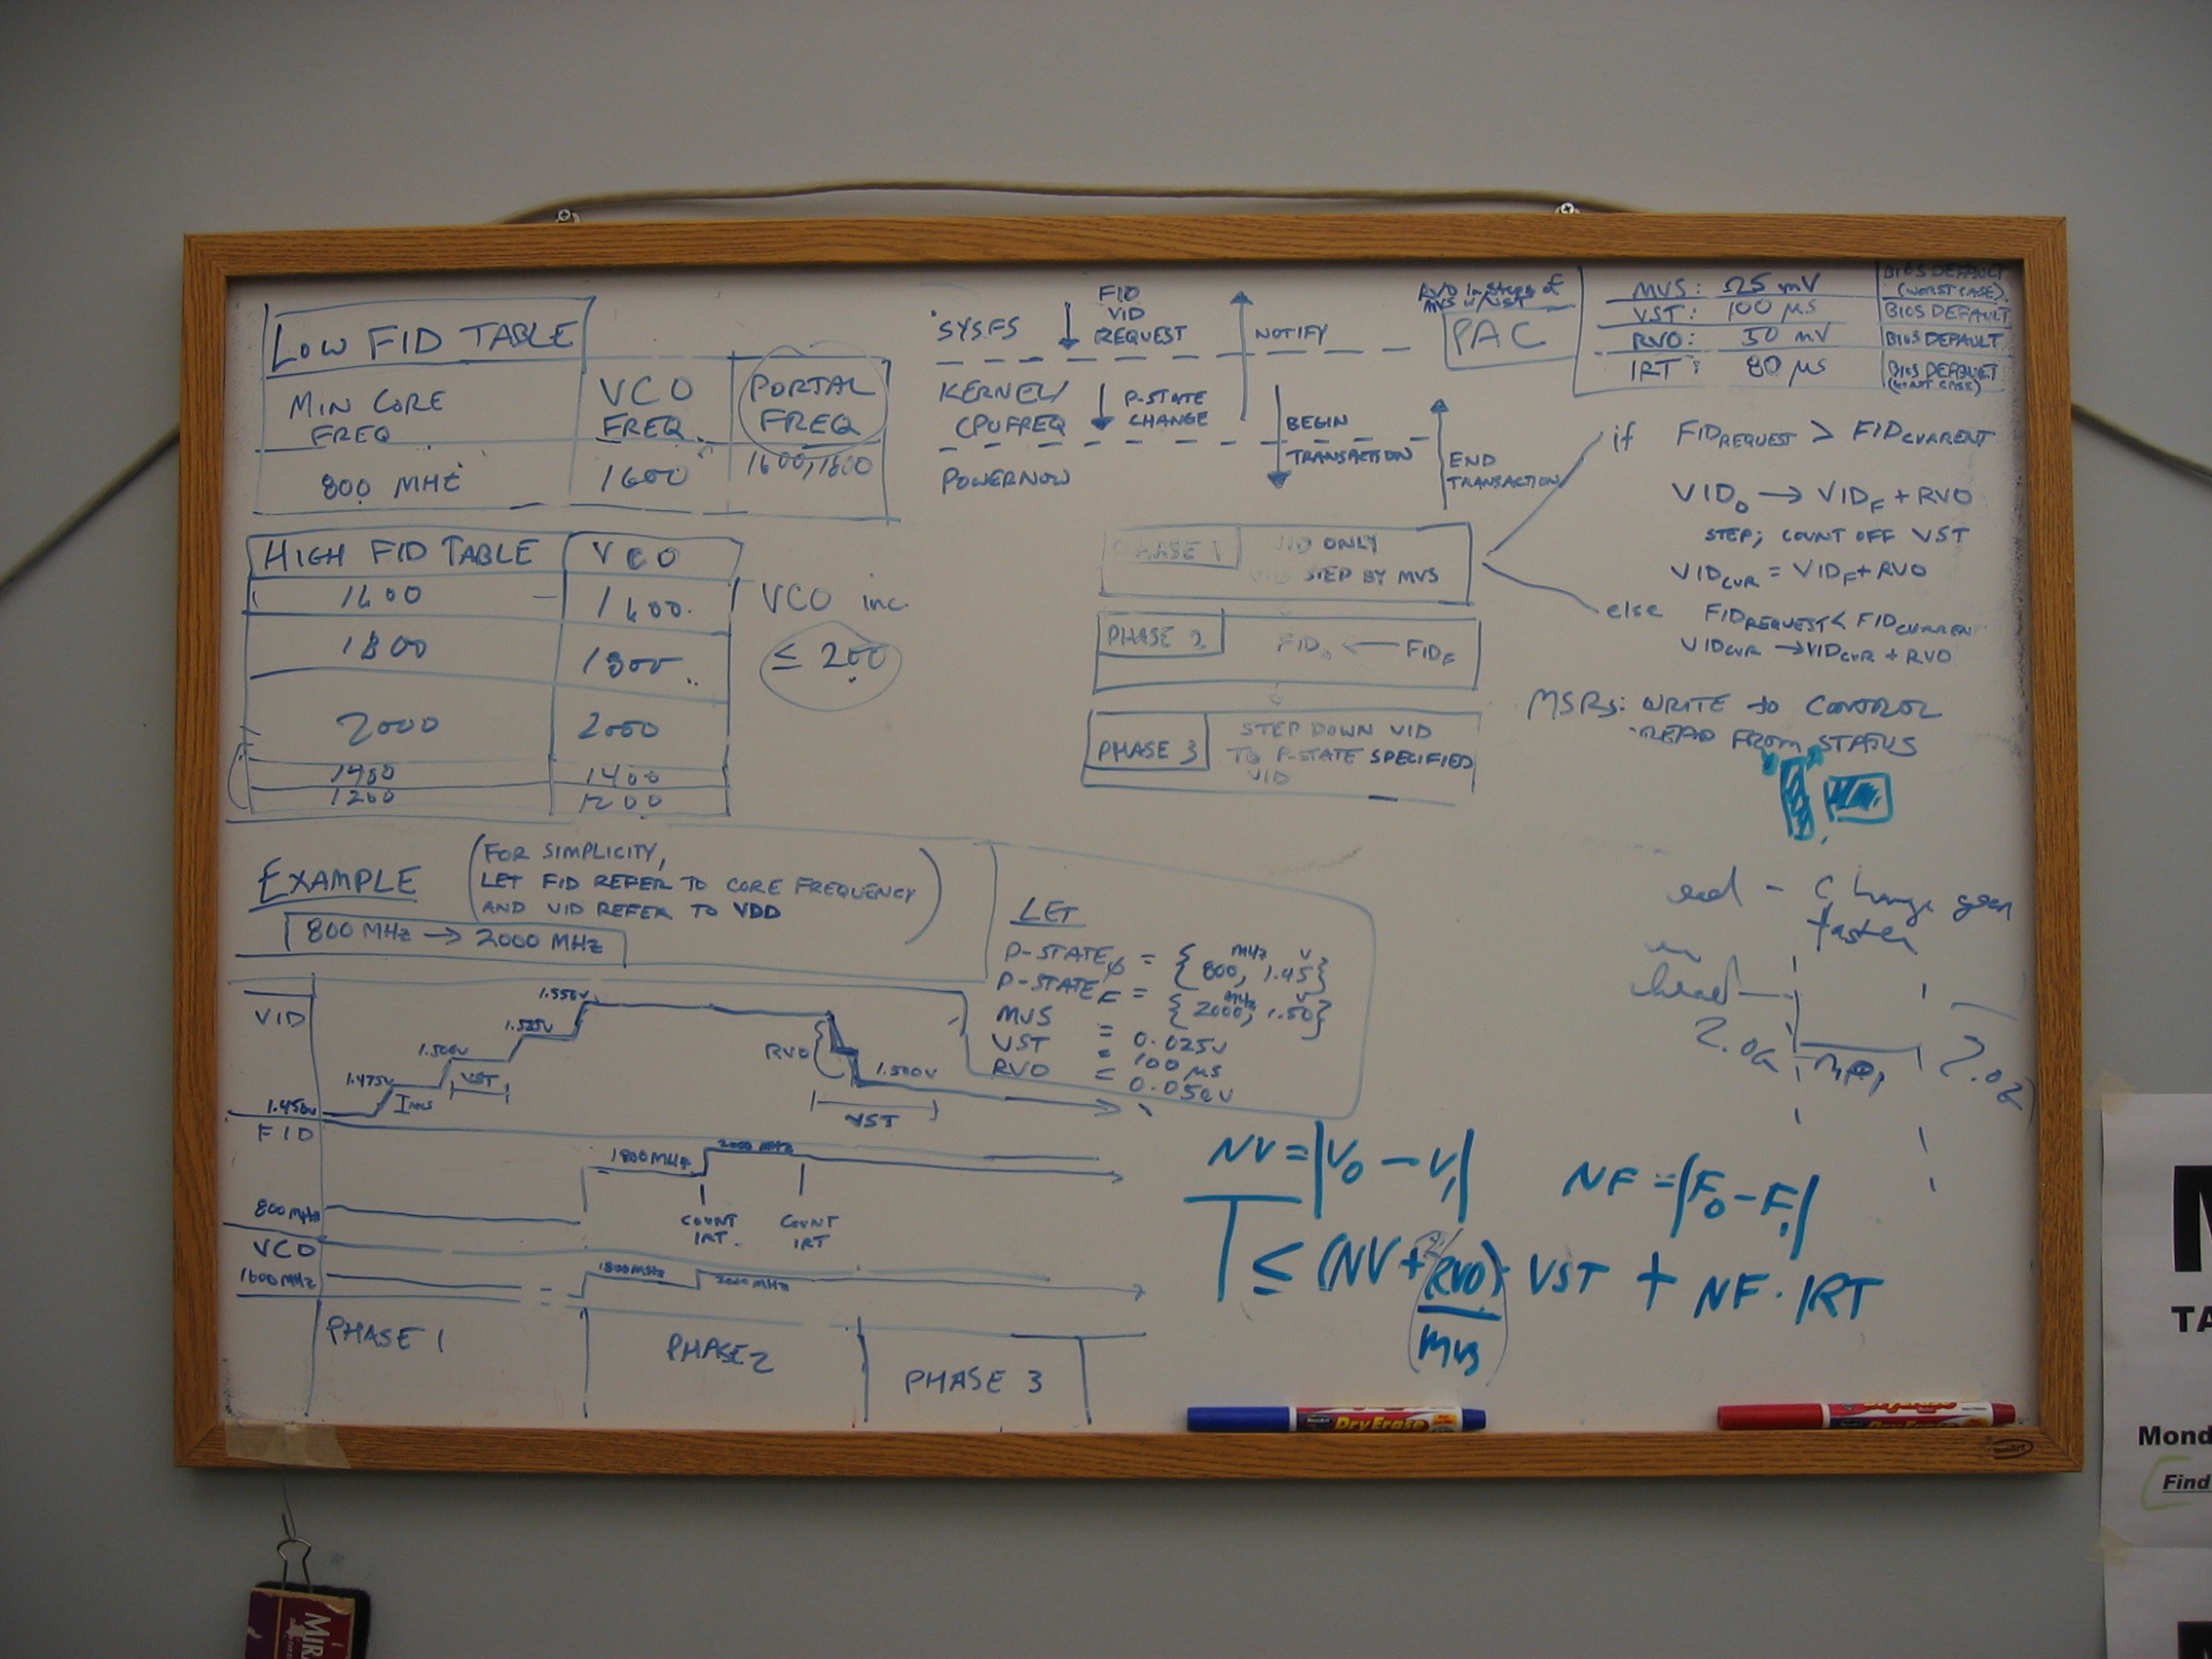 LOW FID TABLE
MIN CORE FREQ
VCO FREQ
PORTAL FREQ
800 MHZ
1600
1600, 1800
HIGH FID TABLE
VCO
1600
1600
1800
1800
2000
2000
1400
1400
1200
1200
VCO inc.
≤ 200
SYSFS
FID
VID
REQUEST
NOTIFY
KERNEL/
CPUFREQ
P-STATE
CHANGE
BEGIN
TRANSACTION
POWERNOW
END
TRANSACTION
RVO in steps of
PAC
MVS: 25 mV
BIOS DEFAULT
(WORST CASE)
VST: 100 μS
BIOS DEFAULT
RVO: 50 mV
BIOS DEFAULT
IRT: 80 μS
BIOS DEFAULT
PHASE 1
VID ONLY
VID STEP BY MVS
PHASE 2
FID₀ ← FID_F
PHASE 3
STEP DOWN VID
TO P-STATE SPECIFIED
VID
if FID_REQUEST > FID_CURRENT
VID₀ → VID_F + RVO
STEP; COUNT OFF VST
VID_CUR = VID_F + RVO
else FID_REQUEST < FID_CURREN
VID_CUR → VID_CUR + RVO
MSRs: WRITE to CONTROL
READ FROM STATUS
Change
faster
EXAMPLE
(FOR SIMPLICITY,
LET FID REFER TO CORE FREQUENCY
AND VID REFER TO VDD)
800 MHZ → 2000 MHZ
LET
P-STATE₀ = {800 MHZ, 1.45 V}
P-STATE_F = {2000 MHZ, 1.50 V}
MVS = 0.025V
VST = 100 μS
RVO = 0.050V
VID
1.450V
1.475V
1.500V
1.525V
1.550V
VST
RVO
1.500V
VST
FID
800MHZ
1800MHZ
2000 MHZ
COUNT
IRT
COUNT
IRT
VCO
1600MHZ
1800MHZ
2000 MHZ
PHASE 1
PHASE 2
PHASE 3
NV = |V₀ - V₁|
NF = |F₀ - F₁|
T ≤ (NV + RVO/MVS) · VST + NF · IRT
DryErase
DryErase
TA
Mond
Find
MIR